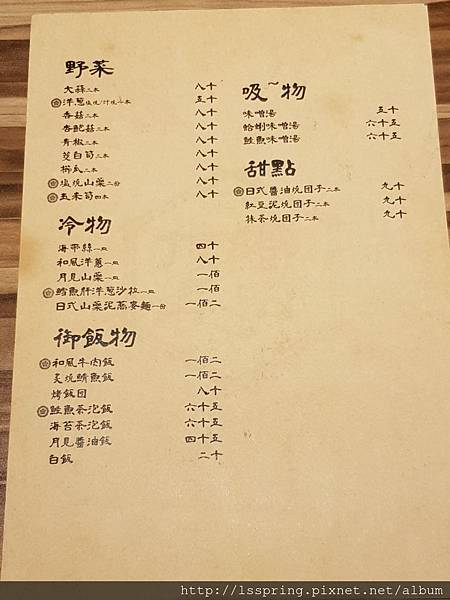 野菜
大蒜二本 八十
洋蔥塩燒/汁燒二本 五十
香菇二本 八十
杏鮑菇二本 八十
青椒二本 八十
茭白筍二本 八十
櫛瓜二本 八十
塩燒山藥二份 八十
玉米筍四本 八十
冷物
海帶絲一皿 四十
和風洋蔥一皿 八十
月見山藥一皿 一佰
鱈魚肝洋蔥沙拉一皿 一佰
日式山藥泥蕎麥麵一份 一佰二
御飯物
和風牛肉飯 一佰二
炙燒鯖魚飯 一佰二
烤飯団 八十
鮭魚茶泡飯 六十五
海苔茶泡飯 六十五
月見醬油飯 四十五
白飯 二十
吸~物
味噌湯 五十
蛤蜊味噌湯 六十五
鮭魚味噌湯 六十五
甜點
日式醬油燒団子二本 九十
紅豆泥燒団子二本 九十
抹茶燒団子二本 九十
http://lsspring.pixnet.net/album